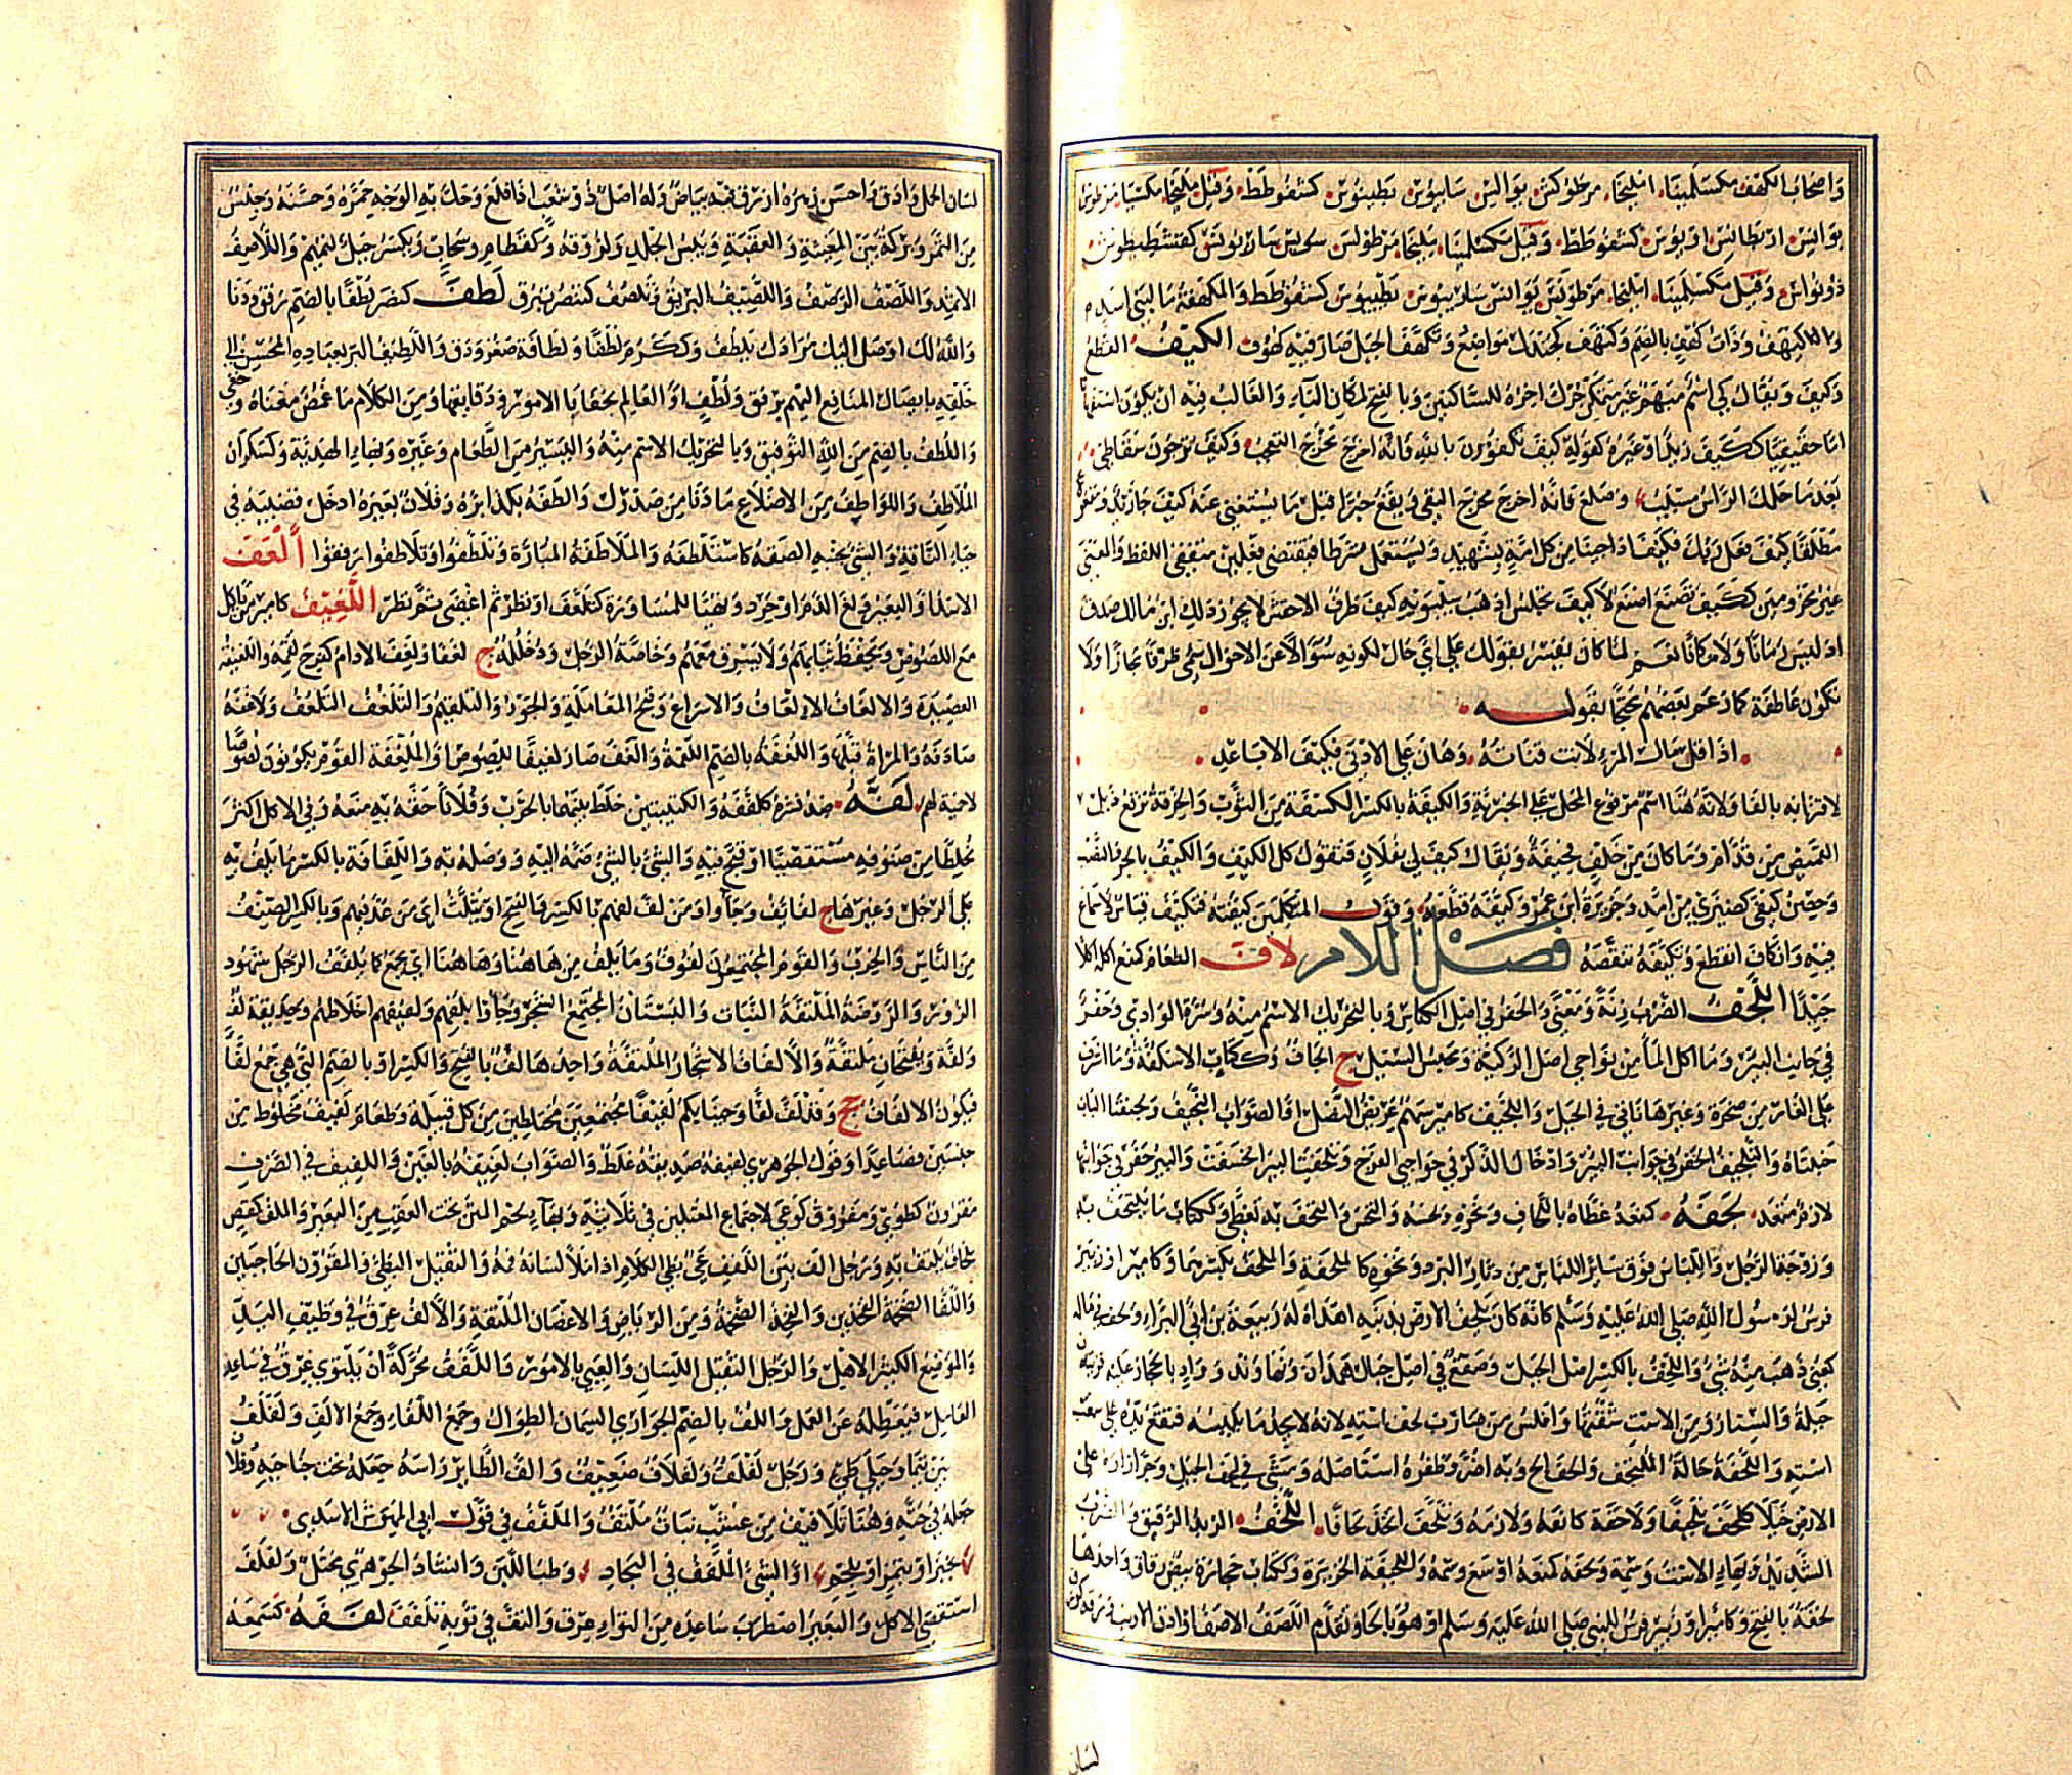 وَاصحَابُ الكهْفِ مكسَلْمِينَا، امليخا، مرطوكش نوالس سانيوس بطنيوس كشفوطط وقيل مليخا مكسينا مرطوس
نوالس اربطانس اونوس كشفوطط وقيل مكسلمينا مليخا مرطولس
ذونواس وقيل مكسلمينا امليخا مرطونس ينوانس ساربنوس بطنيوس كشفوطط والمكهفة ما لبنى اسد
وذات كهف بالضم وكنهف كجندل مواضع وتكهف الجبل صار فيه كهوف الكيف القطع
وكيف ويقال كي اسم مبهم غير متمكن حرك اخره للساكنين وبالفتح لمكان الياء والغالب فيه ان يكون استفهاما
اما حقيقيا ككيف زيد او غيره كقوله كيف تكفرون بالله فانه اخرج مخرج التعجب وكيف يرجون سقاطي
بعد ما جلل الراس مشيب وصلع فانه اخرج مخرج النفي ويقع خبرا قبل ما يستغني عنه ككيف جاء زيد ومفعولا
مطلقا كيف فعل ربك فكيف اذا جئنا من كل امة بشهيد ويستعمل شرطا فيقتضي فعلين متفقي اللفظ والمعنى
غير مجزومين ككيف تصنع اصنع لا كيف تجلس اذهب سيبويه كيف ظرف الاخفش لا يجوز ذلك ابن مالك صدق
اذ ليس زمانا ولا مكانا نعم لما كان يفسر بقولك على اي حال لكونه سؤالا عن الاحوال سمي ظرفا مجازا ولا
تكون عاطفة كما زعم بعضهم محتجا بقوله
اذا قل مال المرء لانت قناته وهان على الادنى فكيف الاباعد
لاقترانه بالفا ولانه هنا اسم مرفوع المحل على الخبرية والكيفة بالكسر الكسفة من الثوب والخرقة ترقع ذيل
القميص من قدام وما كان من خلف فحيفة ويقال كيف لي بفلان فتقول كل الكيف والكيف بالجر والنصب
وحصن كيفى كضيزى بين امد وجزيرة ابن عمر وكيفه قطعه وقول المتكلمين كيفته فتكيف قياس لا سماع
فيه وانكاف انقطع وتكيفه تنقصه فصل اللام لاف الطعام كمنع اكله اكلا
جيدا اللجف الضرب زنة ومعنى والحفر في اصل الكناس وبالتحريك الاسم منه وسرة الوادي وحفر
في جانب البير وما اكل الماء من نواحي اصل الركية ومحبس السيل ج الجاف وككتاب الاسكفة وما اشرف
على الغار من صخرة وغيرها ناتئ في الجبل واللجيف كامير سهم عريض النصل او الصواب النجيف ولجيفتا الباب
جنبتاه والتلجيف الحفر في جوانب البير وادخال الذكر في جوانب الفرج وتلجفت البير انخسفت والبير حفر في جوانبها
لازم متعد لحفه كمنعه غطاه باللحاف ونحوه ولحسه والتحف به تغطى وككتاب ما يلتحف به
وزوجة الرجل واللباس فوق سائر اللباس من دثار البرد ونحوه كالملحفة والملحف بكسرهما وكامير او زبير
فرس لرسول الله صلى الله عليه وسلم كانه كان يلحف الارض بذنبه اهداه له ربيعة بن ابي البراء ولحف في ماله
كعني ذهب منه شئ واللحف بالكسر اصل الجبل وصقع في اصل جبال همدان ونهاوند وواد بالحجاز عليه قريتان
جبلة والستار ومن الاست شقها وافلس من ضارب لحف استه لانه لا يجد ما يلبسه فتقع يده على شعب
استه واللحفة حالة الملتحف والحف الح وبه اضر وظفره استاصله ومشى في لحف الجبل وجر ازاره على
الارض خيلا كلحف تلحيفا ولاحفه كانفه ولازمه وتلحف اتخذ لحافا اللخف الزبد الرقيق والضرب
الشديد وبهاء الاست وسمة ولخفه كمنعه اوسع وسمه واللخيفة الخزيرة وككتاب حجارة بيض رقاق واحدها
لخفة بالفتح وكامير او زبير فرس للنبي صلى الله عليه وسلم او هو بالحاء وتقدم اللصف الاصف او اذن الارنب
لسان
لسان الحمل وادق واحسن زهره ازرق فيه بياض وله اصل ذو شعب اذا قلع وحك به الوجه حمره وحسنه وجنس
من التمر وبركة بين المغيثة والعقبة ويبس الجلد ولزوقه وكقطام وسحاب ويكسر جبل لتميم واللاصف
الاثمد واللصف الرصف واللصيف البريق وتلصف كتنصر تبرق لطف كنصر لطفا بالضم رفق ودنا
والله لك اوصل اليك مرادك بلطف وككرم لطفا ولطافة صغر ودق واللطيف البر بعباده المحسن الى
خلقه بايصال المنافع اليهم برفق ولطف او العالم بخفايا الامور ودقايقها ومن الكلام ما غمض معناه وخفي
واللطف بالضم من الله التوفيق وبالتحريك الاسم منه واليسير من الطعام وغيره وبهاء الهدية وكسكران
الملاطف واللواطف من الاضلاع ما دنا من صدرك والطفه بكذا بره وفلان بعيره ادخل قضيبه في
حياء الناقة والشئ بجنبه الصقه كاستلطفه والملاطفة المبارة وتلطفوا وتلاطفوا رفقوا ألغف
الاسد او البعير ولغ الدم او حرد وتهيا للمساورة كتلغف او نظر ثم اغضى ثم نظر اللغيف كامير من ياكل
مع اللصوص ويحفظ ثيابهم ولا يسرق معهم وخاصة الرجل ودخلله ج لغفا ولغف الادام كفرح لقمه واللغيفة
العصيدة والالغاف الالعاف والاسراع وقبح المعاملة والجور والتلقيم والتلغف التلعف ولاغفه
صادقه والمراة قبلها واللغفة بالضم اللقمة والغف صار لغيفا للصوص والملغفة القوم يكونون لصوصا
لا حمية لهم لفه ضد نشره كلففه والكتيبتين خلط بينهما بالحرب وفلانا حقه به منعه وفي الاكل اكثر
مخلطا من صنوفه مستقصيا او قبح فيه والشئ بالشئ ضمه اليه ووصله به واللفافة بالكسر ما يلف به
على الرجل وغيرها ج لفائف وجاوا ومن لف لفهم بالكسر والفتح او يثلث اي من عد فيهم وبالكسر الصنف
من الناس والحزب والقوم المجتمعون لفوف وما يلف من هاهنا وهاهنا اي يجمع كما يلفف الرجل شهود
الزور والروضة الملتفة النبات والبستان المجتمع الشجر وجاوا بلفهم ولفيفهم اخلاطهم وحديقة لف
ولفة ويفتحان ملتفة والالفاف الاشجار الملتفة واحدها لف بالفتح والكسر او بالضم التي هي جمع لفا
فيكون الالفاف جج وقد لف لفا وجئنا بكم لفيفا مجتمعين مختلطين من كل قبيلة وطعام لفيف مخلوط من
جنسين فصاعدا وقول الجوهري لفيفه صديقه غلط والصواب لغيفه بالغين واللفيف في الصرف
مقرون كطوى ومفروق كوعى لاجتماع المعتلين في ثلاثيه وبهاء لحم المتن تحت العقب من البعير والملف كمقص
لحاف يلتف به ورجل الف بين اللفف عي بطئ الكلام اذا تكلم ملا لسانه فمه والثقيل البطئ والمقرون الحاجبين
واللفا الضخمة الفخذين والفخذ الضخمة ومن الرياض والاغصان الملتفة والالف عرق في وظيف اليد
والموضع الكثير الاهل والرجل الثقيل اللسان والعيي بالامور واللفف محركة ان يلتوي عرق في ساعد
العامل فيعطله عن العمل واللف بالضم الجواري السمان الطوال وجمع اللفاء وجمع الالف ولفلف
بين تيما وجبلي طيئ ورجل لفلف ولفلاف ضعيف والف الطائر راسه جعله تحت جناحيه وفلان
جعله في جبته وهنا تلافيف من عشب نبات ملتف والملفف في قول ابي المهوش الاسدي
بخبز او بتمر او بلحم او الشئ الملفف في البجاد وطب اللبن وانشاد الجوهري مختل ولفلف
استقصى الاكل والبعير اضطرب ساعده من التواء عرق والتف في ثوبه تلفف لقفه كسمعه